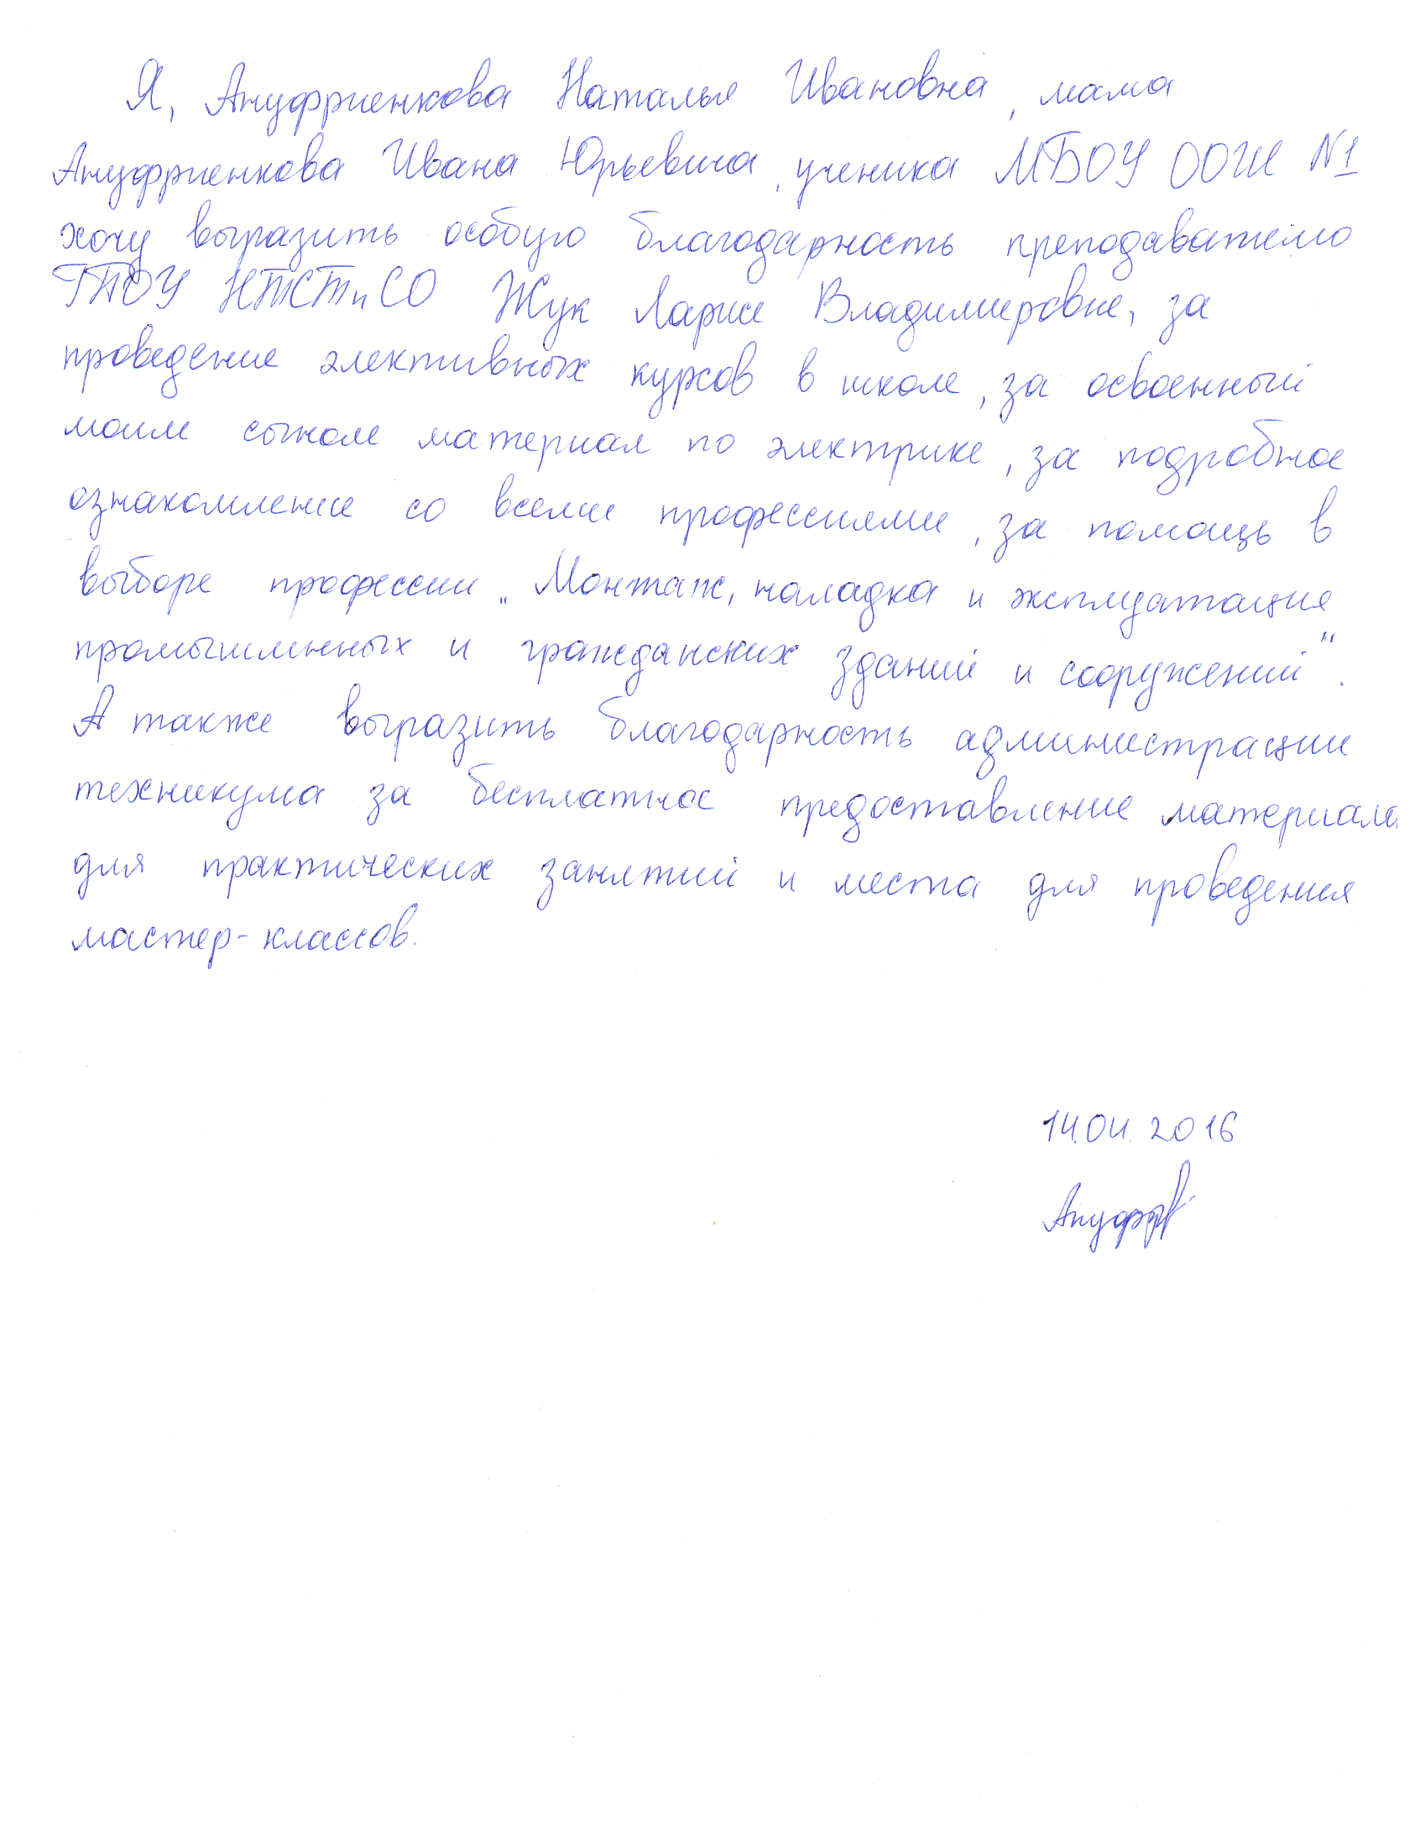 Я, Ануфриенкова Наталья Ивановна, мама
Ануфриенкова Ивана Юрьевича, ученика МБОУ ООШ №1
хочу выразить особую благодарность преподавателю
ГПОУ НТСТиСО Жук Ларисе Владимировне, за
проведение элективных курсов в школе, за освоенный
моим сыном материал по электрике, за подробное
ознакомление со всеми профессиями, за помощь в
выборе профессии „Монтаж, наладка и эксплуатация
промышленных и гражданских зданий и сооружений“.
А также выразить благодарность администрации
техникума за бесплатное предоставление материала
для практических занятий и места для проведения
мастер-классов.
14.04.2016
Ануфр